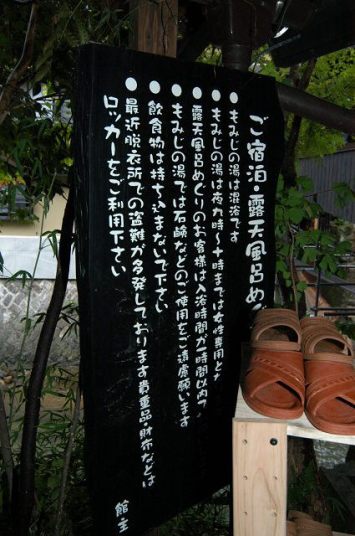 ご宿泊・露天風呂め
●もみじの湯は混浴です
●もみじの湯は夜九時〜十時までは女性専用とな
●露天風呂めぐりのお客様は入浴時間が一時間以内で
●もみじの湯では石鹸などのご使用をご遠慮願います
●飲食物は持ち込まないで下さい
●最近脱衣所での盗難が多発しております貴重品・財布などは
ロッカーをご利用下さい
館主